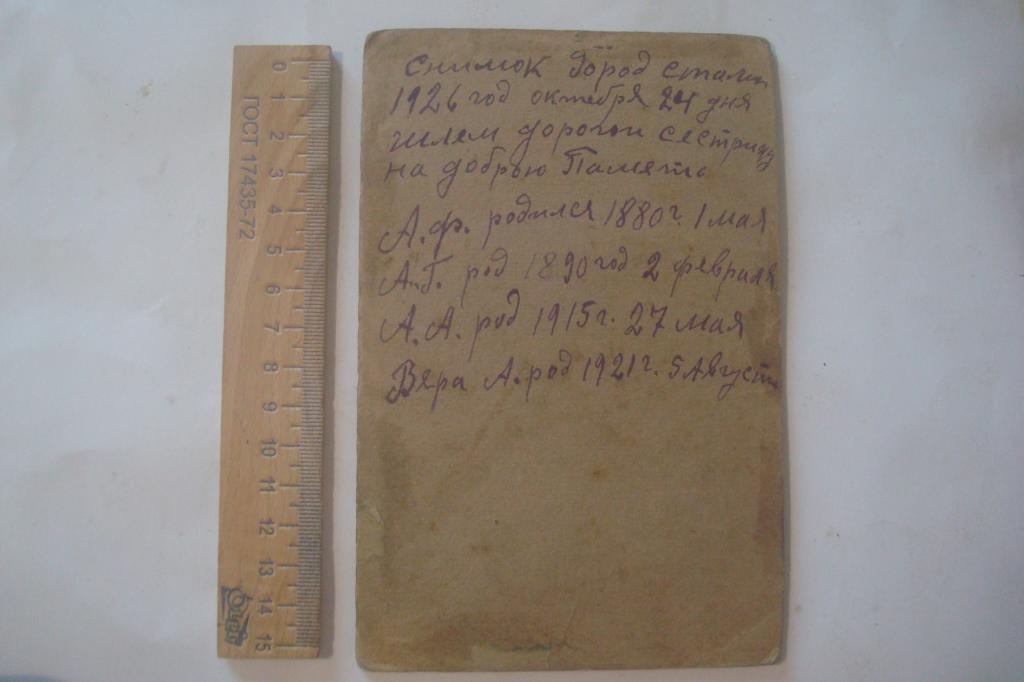 снимок город сталин
1926 год октября 24 дня
шлем дорогой сестрицу
на добрую Память
А.Ф. родился 1880 г. 1 мая
А.Г. род 1890 год 2 февраля
А.А. род 1915 г. 27 мая
Вяра А. род 1921 г. 5 Августа
ГОСТ 17435-72
0 1 2 3 4 5 6 7 8 9 10 11 12 13 14 15